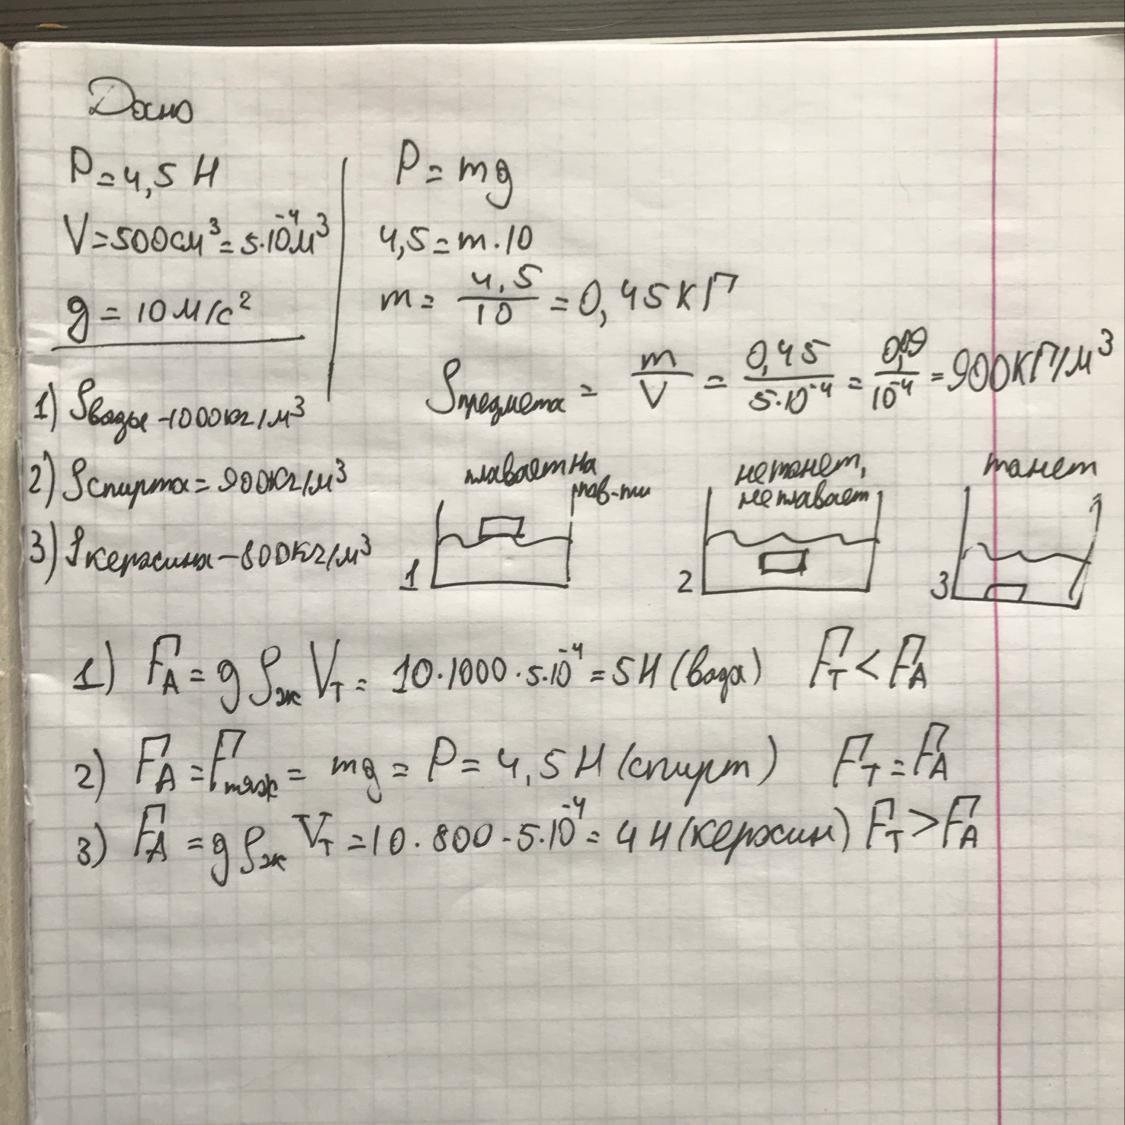 Дано
P=4,5 Н
V=500см³=5·10⁻⁴м³
g=10 м/с²
1) ρводы -1000кг/м³
2) ρспирта=900кг/м³
3) ρкеросина-800кг/м³
P=mg
4,5=m·10
m= 4,5/10 =0,45кг
ρпредмета= m/V = 0,45/5·10⁻⁴ = 0,09/10⁻⁴ =900кг/м³
плавает на
пов-ти
1
не тонет,
не плавает
2
тонет
3
1) FA=gρжVт= 10·1000·5·10⁻⁴=5Н(вода) Fт<FA
2) FA=Fтяж= mg=P=4,5Н(спирт) Fт=FA
3) FA=gρжVт=10·800·5·10⁻⁴=4Н(керосин) Fт>FA